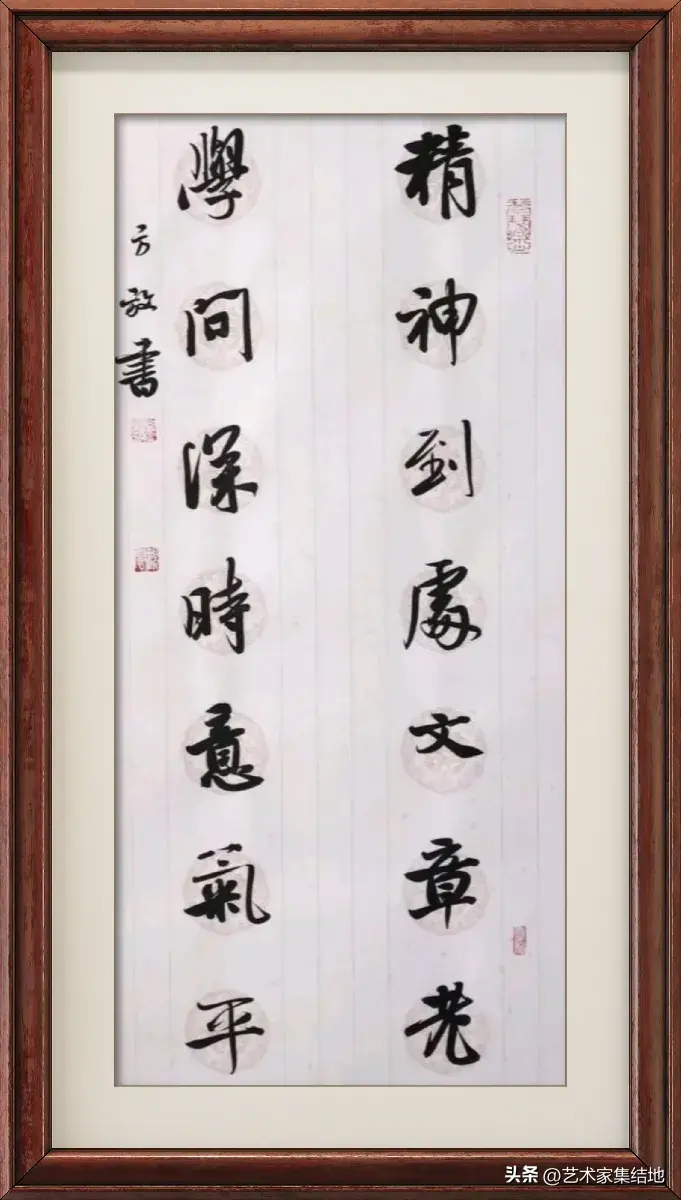 精神到處文章老
學問深時意氣平
方敬書
头条 @艺术家集结地